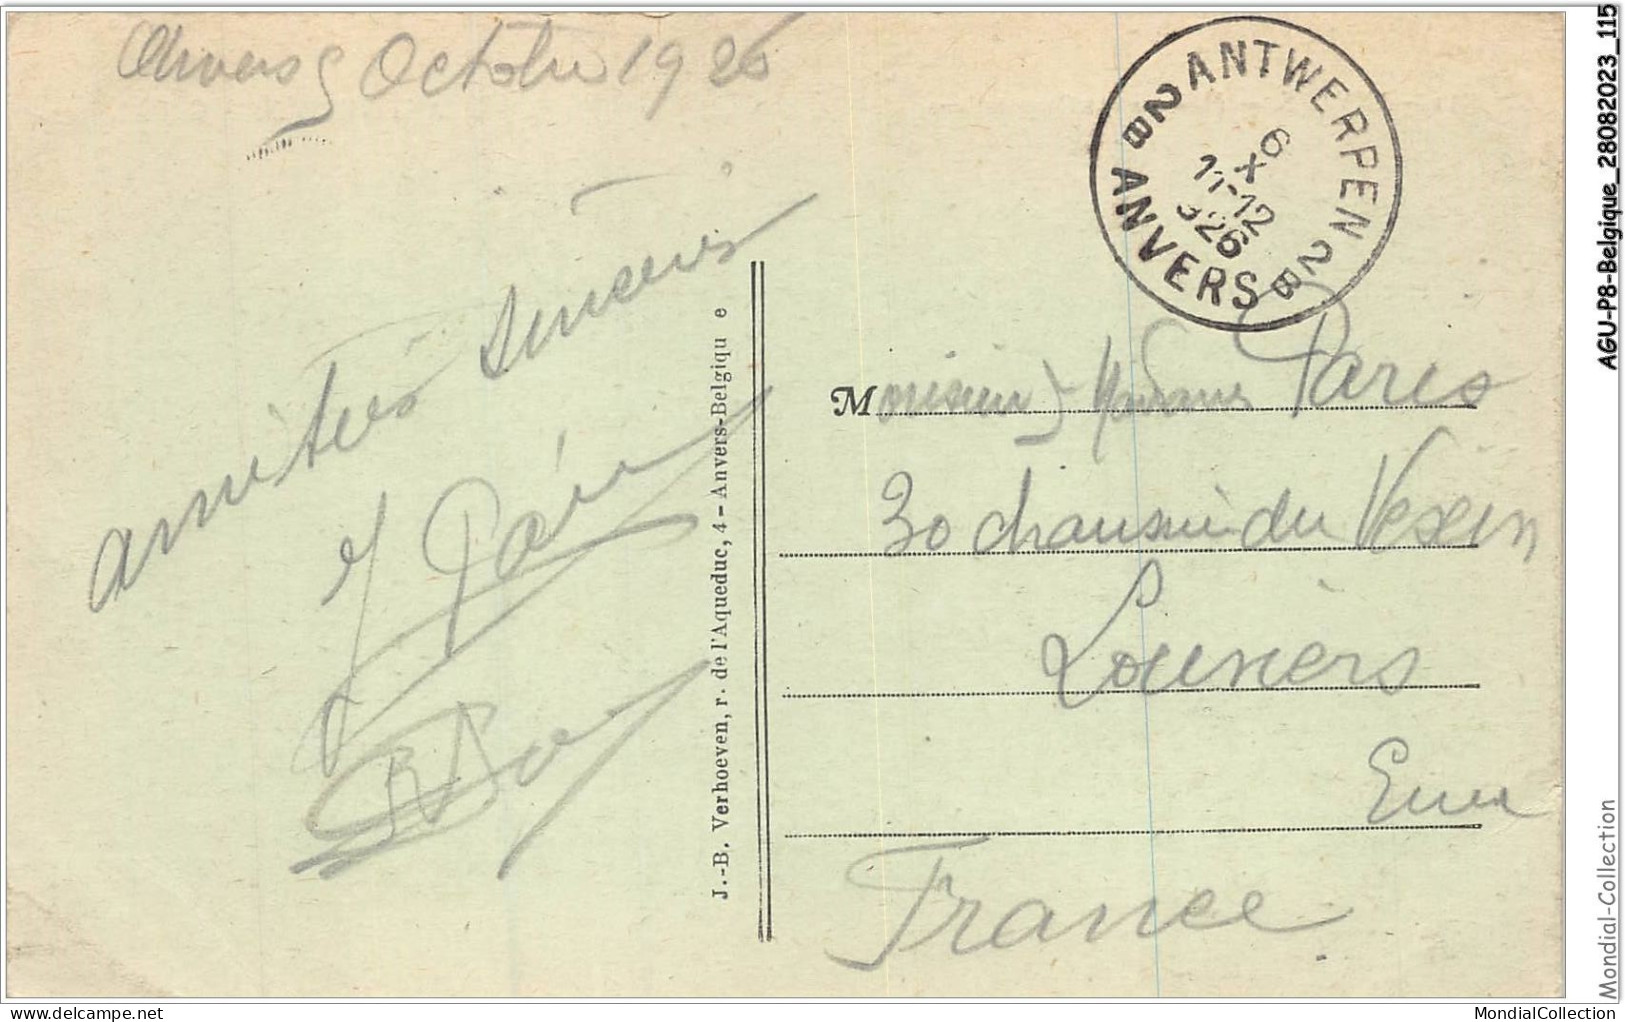 Anvers 5 Octobre 1926
amitiés sincères
ANTWERPEN
2B 2B
6
X
11-12
926
ANVERS
J.-B. Verhoeven, r. de l'Aqueduc, 4 - Anvers-Belgiqu e
Monsieur & Madame Paris
30 chaussée du Vexin
Louviers
Eure
France
AGU-P8-Belgique_28082023_115
Mondial-Collection
delcampe.net
MondialCollection